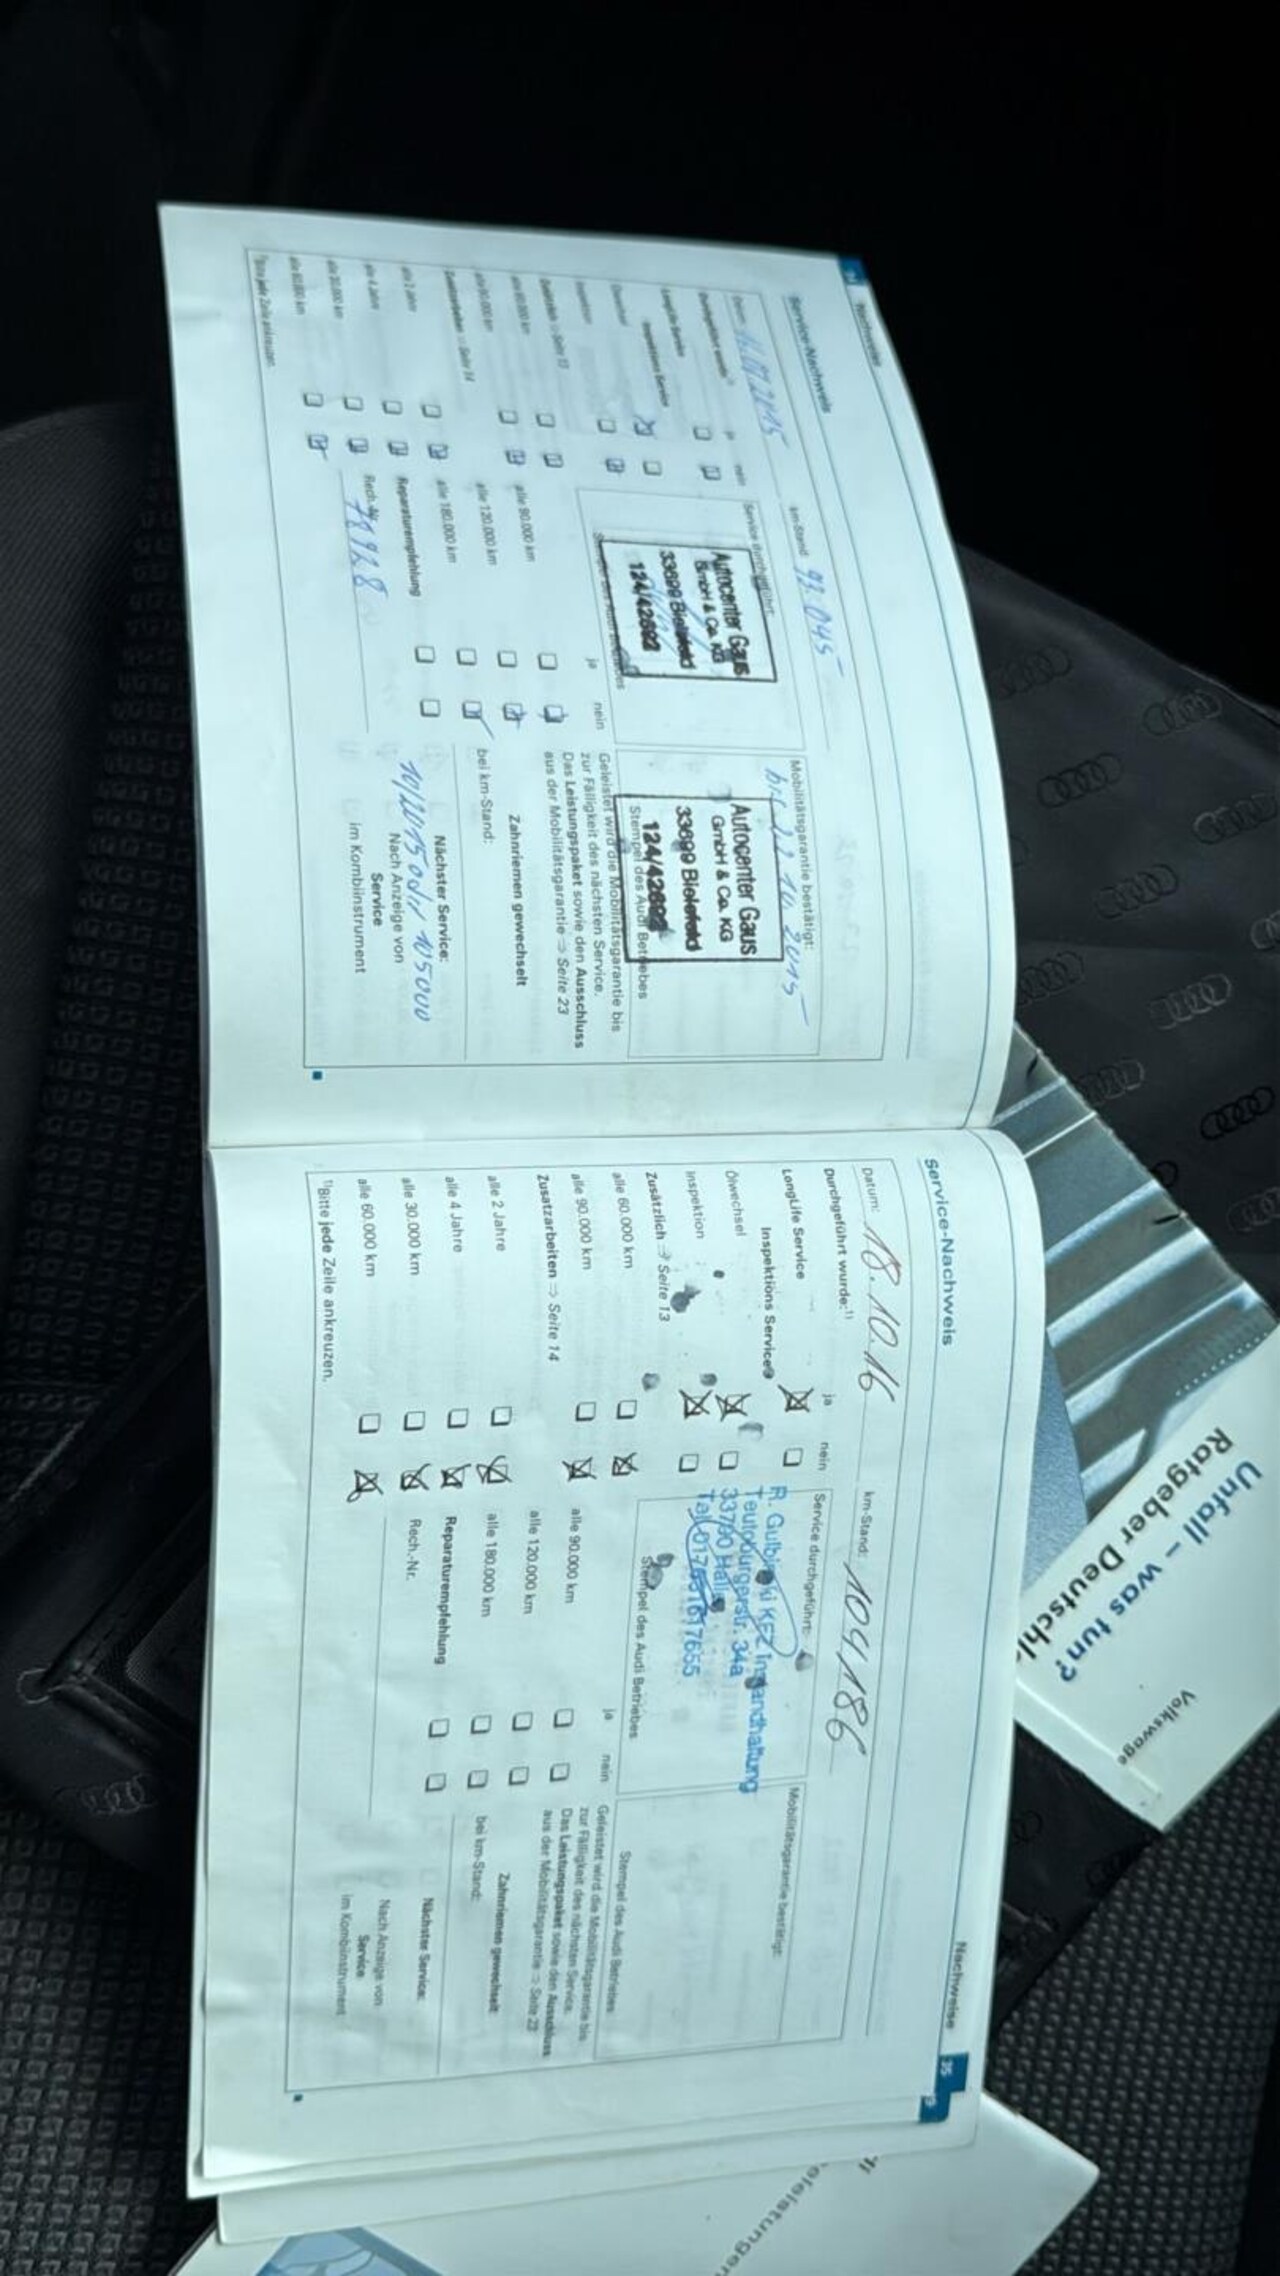 Nachweise
Service-Nachweis
km-Stand: 93.045
Durchgeführt wurde:
ja nein
LongLife Service
Inspektions Service
Ölwechsel
Inspektion
Zusätzlich ⇒ Seite 13
alle 60.000 km
alle 90.000 km
Zusatzarbeiten ⇒ Seite 14
alle 2 Jahre
alle 4 Jahre
alle 30.000 km
alle 60.000 km
Bitte jede Zeile ankreuzen.
Service durchgeführt:
Autocenter Gaus
GmbH & Co. KG
33699 Bielefeld
124/42692
ja nein
alle 90.000 km
alle 120.000 km
alle 180.000 km
Reparaturempfehlung
Rech.-Nr.
Mobilitätsgarantie bestätigt:
Autocenter Gaus
GmbH & Co. KG
33699 Bielefeld
124/42692
Stempel des Audi Betriebes
Geleistet wird die Mobilitätsgarantie bis
zur Fälligkeit des nächsten Service.
Das Leistungspaket sowie den Ausschluss
aus der Mobilitätsgarantie ⇒ Seite 23
Zahnriemen gewechselt
bei km-Stand:
Nächster Service:
10/2015 oder 105000
Nach Anzeige von
Service
im Kombiinstrument
Nachweise 35
Service-Nachweis
Datum: 18.10.16
km-Stand: 104186
Durchgeführt wurde:¹⁾
ja nein
LongLife Service
Inspektions Service
Ölwechsel
Inspektion
Zusätzlich ⇒ Seite 13
alle 60.000 km
alle 90.000 km
Zusatzarbeiten ⇒ Seite 14
alle 2 Jahre
alle 4 Jahre
alle 30.000 km
alle 60.000 km
¹⁾Bitte jede Zeile ankreuzen.
Service durchgeführt:
KFZ Instandhaltung
Teutoburgerstr. 34a
33790 Halle
Stempel des Audi Betriebes
ja nein
alle 90.000 km
alle 120.000 km
alle 180.000 km
Reparaturempfehlung
Rech.-Nr.
Mobilitätsgarantie bestätigt:
Stempel des Audi Betriebes
Geleistet wird die Mobilitätsgarantie bis
zur Fälligkeit des nächsten Service.
Das Leistungspaket sowie den Ausschluss
aus der Mobilitätsgarantie ⇒ Seite 23
Zahnriemen gewechselt
bei km-Stand:
Nächster Service:
Nach Anzeige von
Service
im Kombiinstrument
Unfall – was tun?
Ratgeber Deutschl
Volkswage